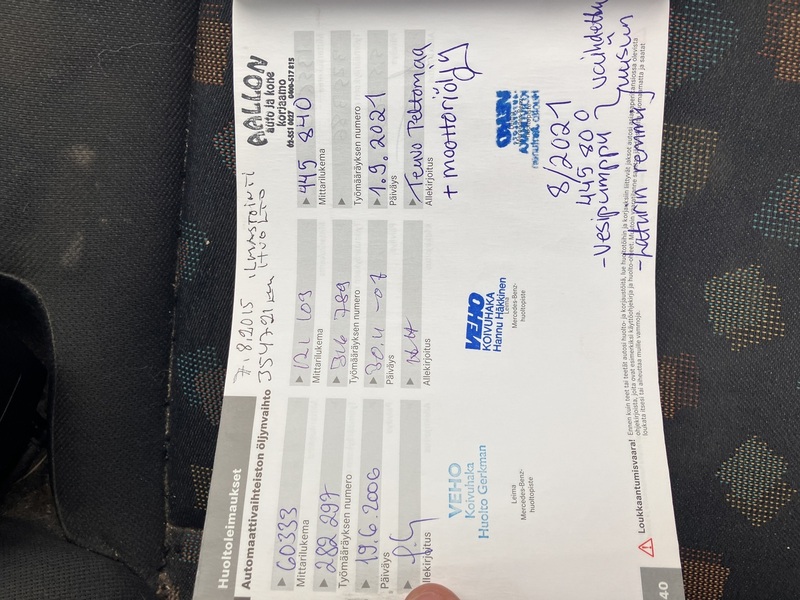 Huoltoleimaukset
Automaattivaihteiston öljynvaihto
7.8.2015 ILMASTOINTI
354721 km HUOLTO
60333
Mittarilukema
282 297
Työmääräyksen numero
19.6.2006
Päiväys
Allekirjoitus
VEHO
Koivuhaka
Huolto Gerkman
Leima
Mercedes-Benz-
huoltopiste
121 109
Mittarilukema
316 789
Työmääräyksen numero
30.4 -07
Päiväys
Allekirjoitus
VEHO
KOIVUHAKA
Hannu Häkkinen
Leima
Mercedes-Benz-
huoltopiste
AALLON
auto ja kone
korjaamo
445 840
Mittarilukema
Työmääräyksen numero
1.9.2021
Päiväys
Teuvo Peltomaa
Allekirjoitus
+ moottoriöljy
8/2021
445 800
-Vesipumppu
vaihdettu
uusiin
Loukkaantumisvaara!
40